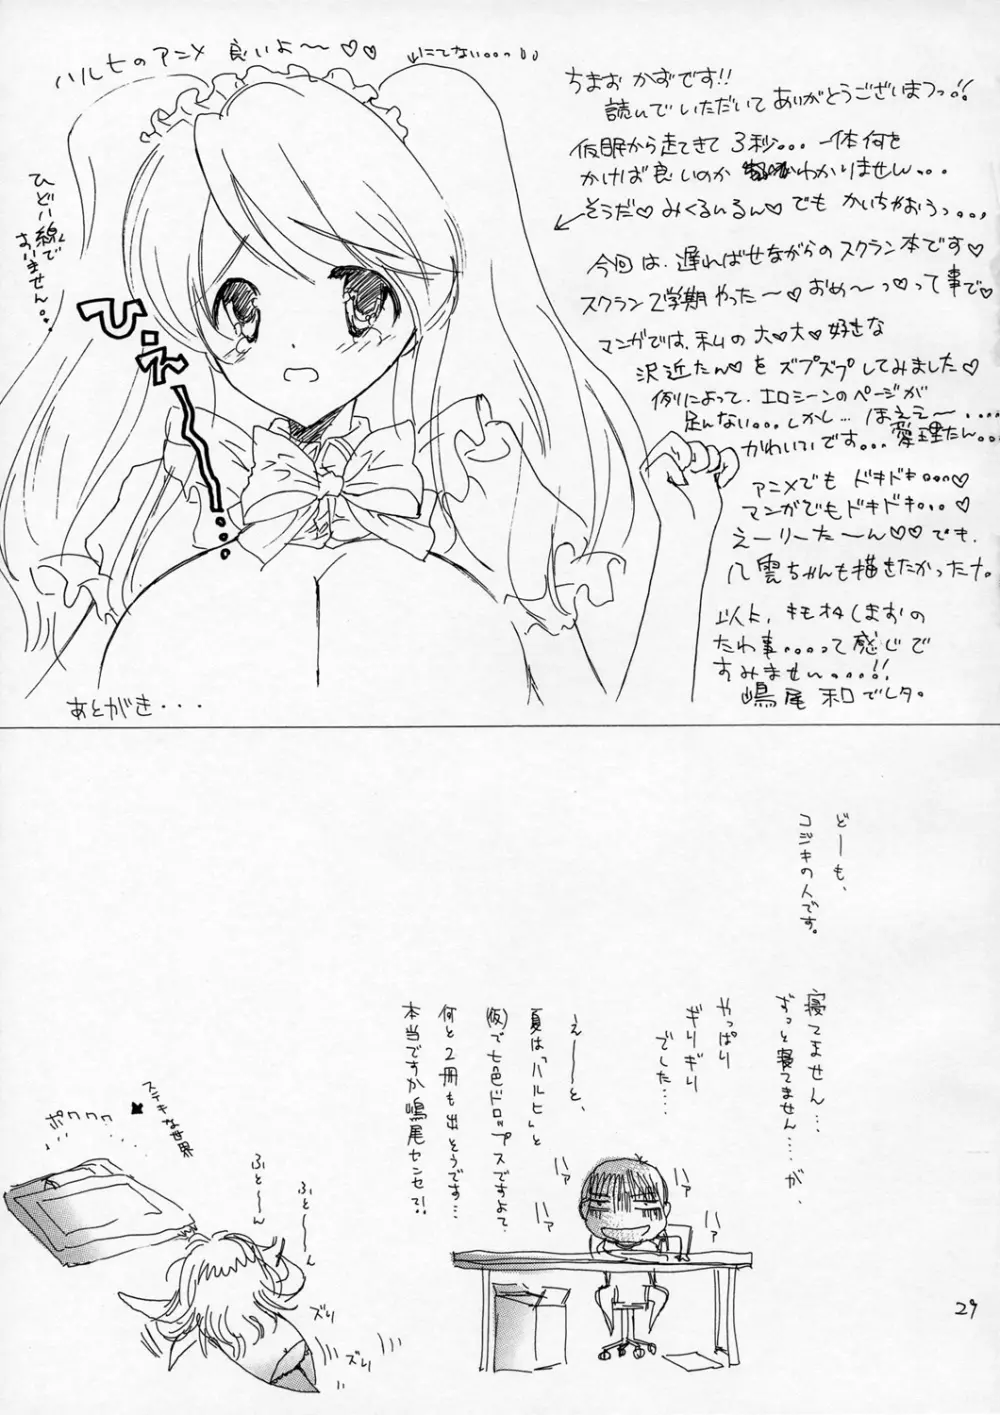 ハルヒのアニメ 良いよ〜♡♡
↓にてない。。っ
ひどい線で
すいません。。
ひ・え〜〜...
ちまお かずです!!
読んでいただいて ありがとうございまつっ!!
仮眠から走てきて 3秒。。。一体何を
かけば良いのか わかりません...
そうだ♡ みくるいるん♡ でも かいちがおうっ。。。
今回は、遅ればせながらの スクラン本です♡
スクラン2学期やった〜♡ おめ〜っ♡って事で♡
マンガでは、私の 大♡大♡好きな
沢近たん♡を ズプズプしてみました♡
例によって、エロシーンのページが
足んない。。。しかし... ほええ〜....
かわいいです。。。愛理たん...
アニメでも ドキドキ...♡
マンガでもドキドキ...♡
えーりーた〜ん♡♡ でも、
八雲ちゃんも描きたかったナ。
以上、キモオタしまおの
たわ事。。。。って感じで
すみません....!!
嶋尾 和でした。
あとがき...
どーも、
コジキの人です。
寝てません...
ずっと寝てません....が、
やっぱり
ギリギリ
でした....
え〜〜と、
夏は「ハルヒ」と
(仮)で七色ドロップスですよて、
何と2冊も出そうです...
本当ですか嶋尾センセて?!
ハァ
ハァ
ハァ
ハァ
ステキな世界
ポワワワ
ふと〜〜ん
ふと〜〜ん
ズリ
ズリ
29